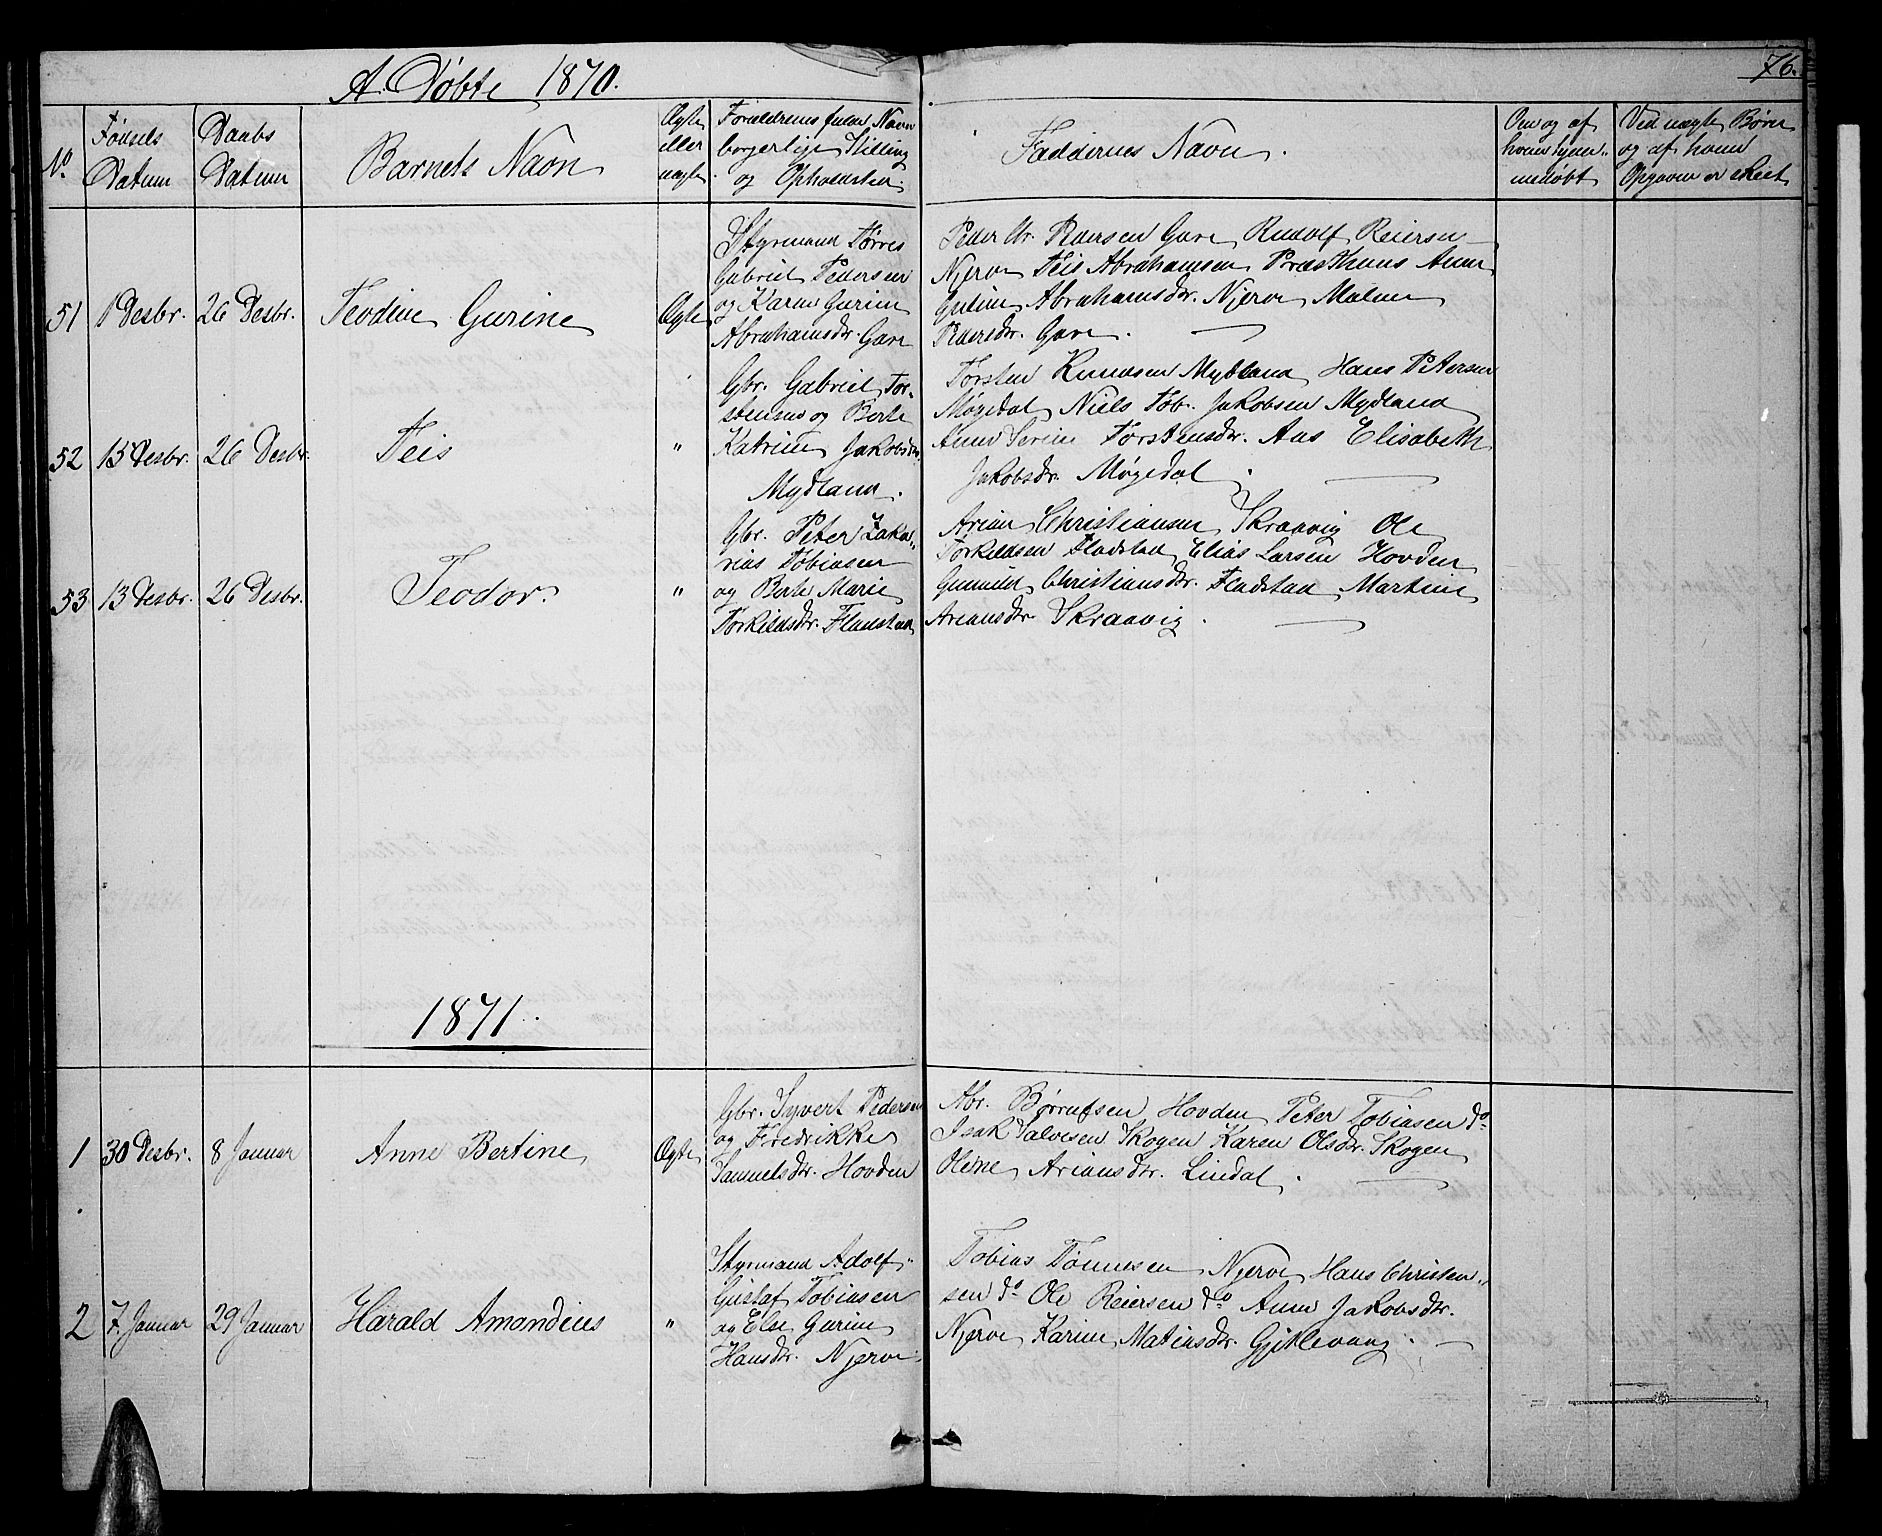 A. Døbte 1870.
76.
No
Fødsels Datum
Daabs Datum
Barnets Navn
Ægte eller uægte.
Forældrenes fulde Navn
borgerlige Stilling
og Opholdsted.
Faddernes Navn.
Om og af
hvem hjem-
medøbt
Ved uægte Børn
og af hvem
Opgaven er skeet
51 1 Desbr. 26 Desbr. Teodine Gurine Ægte
Styrmand Tørres
Gabriel Pedersen
og Karen Gurine
Abrahamsdtr. Gare
Peder Gare Rudolf Reiersen
Njerve Teis Abrahamsen Præsthuus Anne
Abrahamsdtr. Njerve Malene
Pedersdtr. Gare.
52 15 Desbr. 26 Desbr. Teis "
Gbr. Gabriel Tor-
stensen og Berte
Katrine Jakobsdtr.
Mydland.
Torsten Knudsen Mydland Hans Petersen
Møgedal Niels Tob. Jakobsen Mydland
Anne Serine Torstensdtr. Aas Elisabeth
Jakobsdtr. Møgedal.
53 13 Desbr. 26 Desbr. Teodor. "
Gbr. Peter Zaka-
rias Tobiasen
og Berte Marie
Torkildsdtr. Fladstad
Arian Christiansen Skraavig Ole
Torkildsen Fladstad Elias Larsen Hovden
Gunnild Christiansdtr. Fladstad Martine
Ariansdtr. Skraavig.
1871.
1 30 Desbr. 8 Januar Anne Bertine Ægte
Gbr. Syvert Pedersen
og Fredrikke
Samuelsdtr. Hovden
Abr. Børrufsen Hovden Peter Tobiasen do
Isak Salvesen Skogen Karen Olsdtr. Skogen
Olene Ariansdtr. Lindal.
2 7. Januar 29 Januar Harald Amandius "
Styrmand Adolf
Gustaf Tobiasen
og Else Gurine
Hansdtr. Njerve.
Tobias Tønnesen Njerve Hans Christen-
sen do Ole Reiersen do Anne Jakobsdtr.
Njerve Karine Matiasdtr. Gjitlevaag.